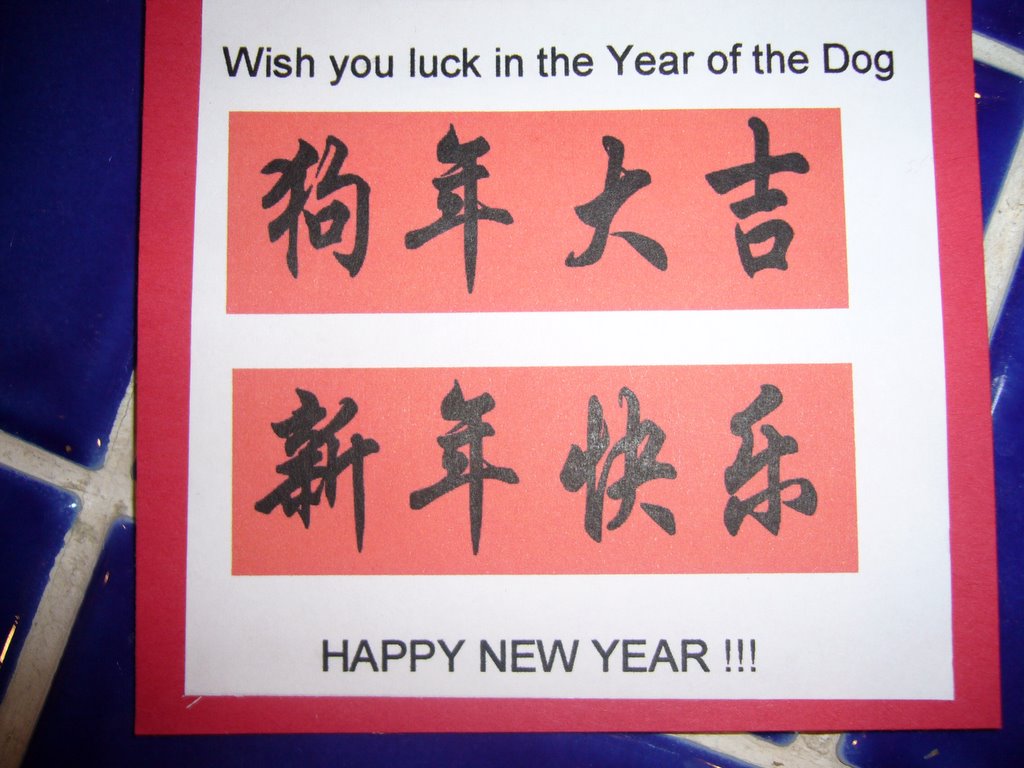 Wish you luck in the Year of the Dog
狗年大吉
新年快乐
HAPPY NEW YEAR !!!